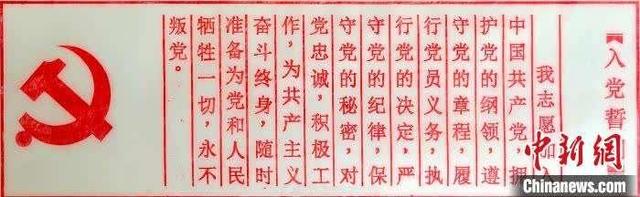 【入党誓
我志愿加入
中国共产党，拥
护党的纲领，遵
守党的章程，履
行党员义务，执
行党的决定，严
守党的纪律，保
守党的秘密，对
党忠诚，积极工
作，为共产主义
奋斗终身，随时
准备为党和人民
牺牲一切，永不
叛党。
中新網
Chinanews.com